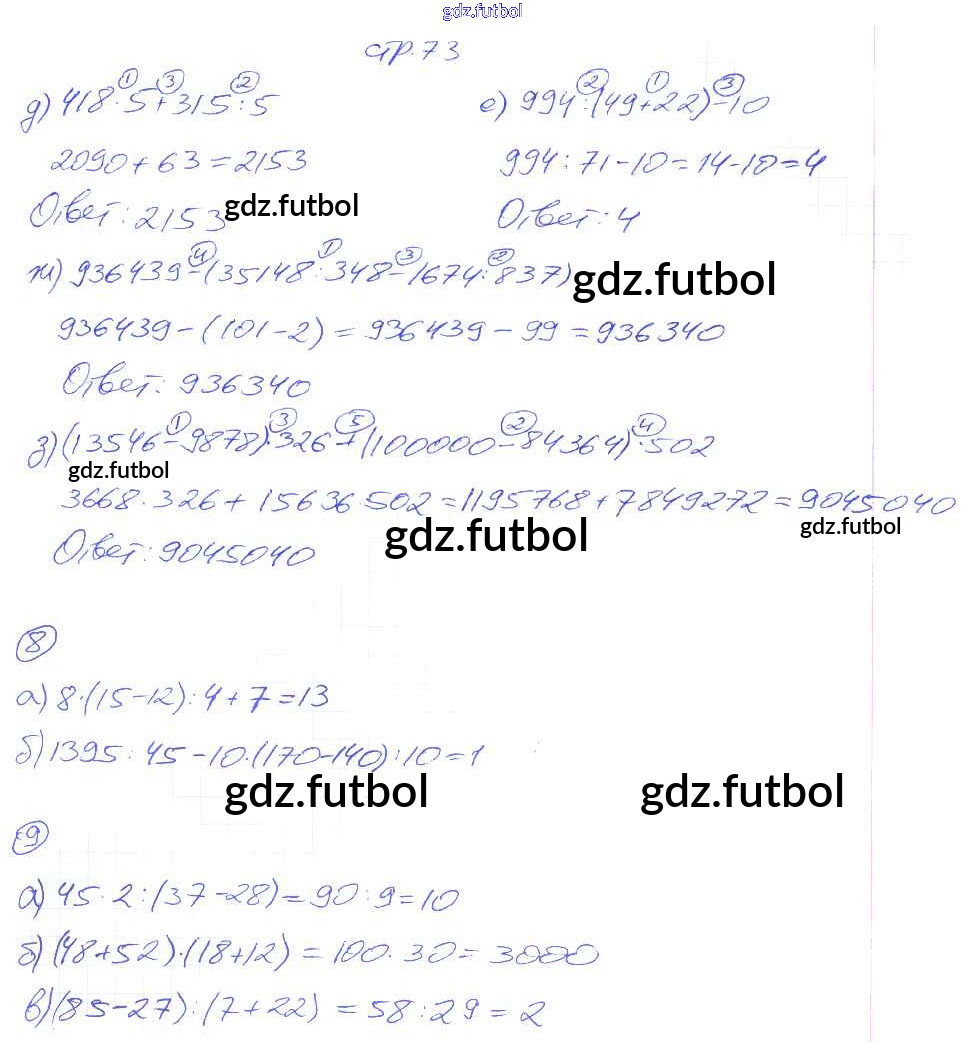 gdz.futbol
стр. 73
① ③ ②
д) 418·5+315:5
2090+63=2153
Ответ: 2153 gdz.futbol
② ① ③
е) 994:(49+22)-10
994:71-10=14-10=4
Ответ: 4
④ ① ③ ②
ж) 936439-(35148:348-1674:837) gdz.futbol
936439-(101-2)=936439-99=936340
Ответ: 936340
① ③ ⑤ ② ④
з) (13546-9878)·326+(100000-84364)·502
gdz.futbol
3668·326+15636·502=1195768+7849272=9045040
gdz.futbol gdz.futbol
Ответ: 9045040
⑧
а) 8·(15-12):4+7=13
б) 1395:45-10·(170-140):10=1
gdz.futbol gdz.futbol
⑨
а) 45·2:(37-28)=90:9=10
б) (48+52)·(18+12)=100·30=3000
в) (85-27):(7+22)=58:29=2